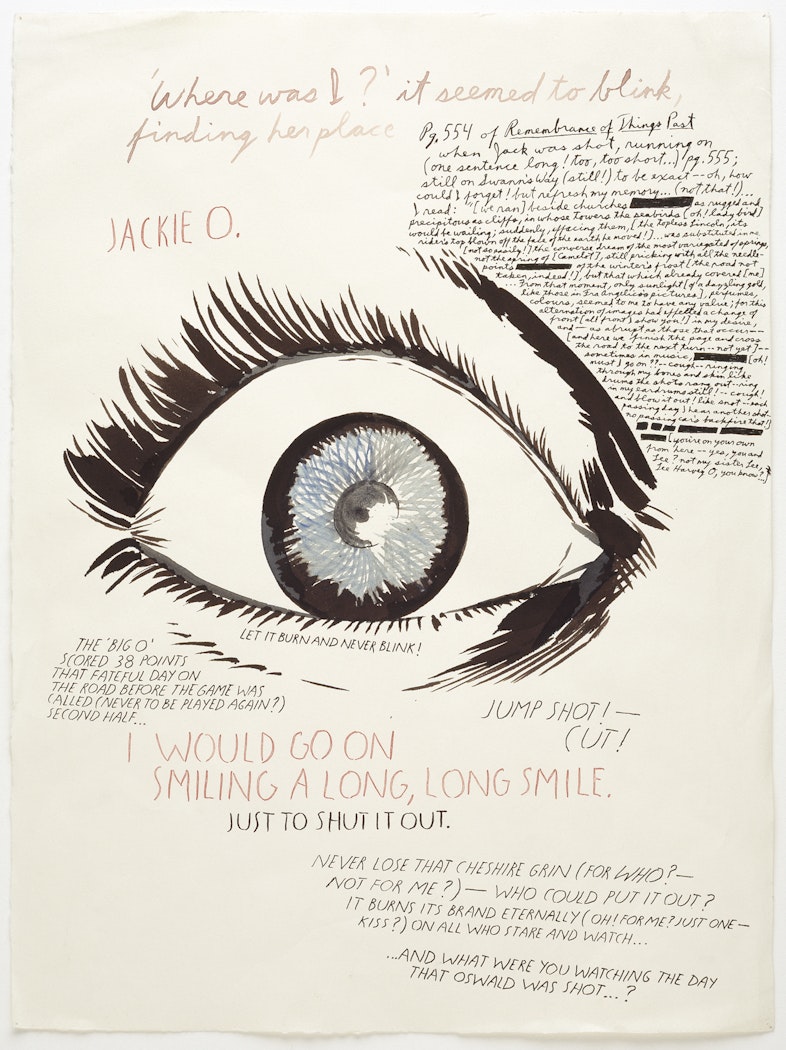 'Where was I?' it seemed to blink,
finding her place
Pg. 554 of Remembrance of Things Past
when Jack was shot, running on
(one sentence long! too, too short...) pg. 555;
still on Swann's Way (still!) to be exact -- oh, how
could I forget! but refresh my memory... (not that!)...
I read: "[we ran] beside churches as rugged and
precipitous as cliffs, in whose towers the seabirds [oh! lady bird]
would be wailing; suddenly, effacing them, [the topless Lincoln; its
rider's top blown off the face of the earth he moved!]... was substituted in me
[not so easily!] the converse dream of the most variegated of springs,
not the spring of [Camelot], still pricking with all the needle-
points of the winter's frost [the road not
taken, indeed!], but that which already covered [me]
... From that moment, only sunlight [of a dazzling gold,
like those in Fra Angelico's pictures], perfumes,
colours, seemed to me to have any value; for this
alternation of images had effected a change of
front [all front] show you!] in my desire,
and -- as abrupt as those that occur --
[and here we finish the page and cross
the road to the next turn -- not yet] --
sometimes in music, [oh!
must I go on?? -- cough -- ringing
through my bones and skin like
drums the shots rang out -- ring
in my eardrums still! -- cough!
and blow it out! like snot -- each
passing day I hear another shot --
no passing car's backfire that!]
[you're on your own
from here -- yes, you and
Lee? not my sister Lee,
Lee Harvey O, you know?...]
JACKIE O.
LET IT BURN AND NEVER BLINK!
THE 'BIG O'
SCORED 38 POINTS
THAT FATEFUL DAY ON
THE ROAD BEFORE THE GAME WAS
CALLED (NEVER TO BE PLAYED AGAIN?)
SECOND HALF...
JUMP SHOT! —
CUT!
I WOULD GO ON
SMILING A LONG, LONG SMILE.
JUST TO SHUT IT OUT.
NEVER LOSE THAT CHESHIRE GRIN (FOR WHO? —
NOT FOR ME?) — WHO COULD PUT IT OUT?
IT BURNS ITS BRAND ETERNALLY (OH! FOR ME? JUST ONE —
KISS?) ON ALL WHO STARE AND WATCH...
...AND WHAT WERE YOU WATCHING THE DAY
THAT OSWALD WAS SHOT...?